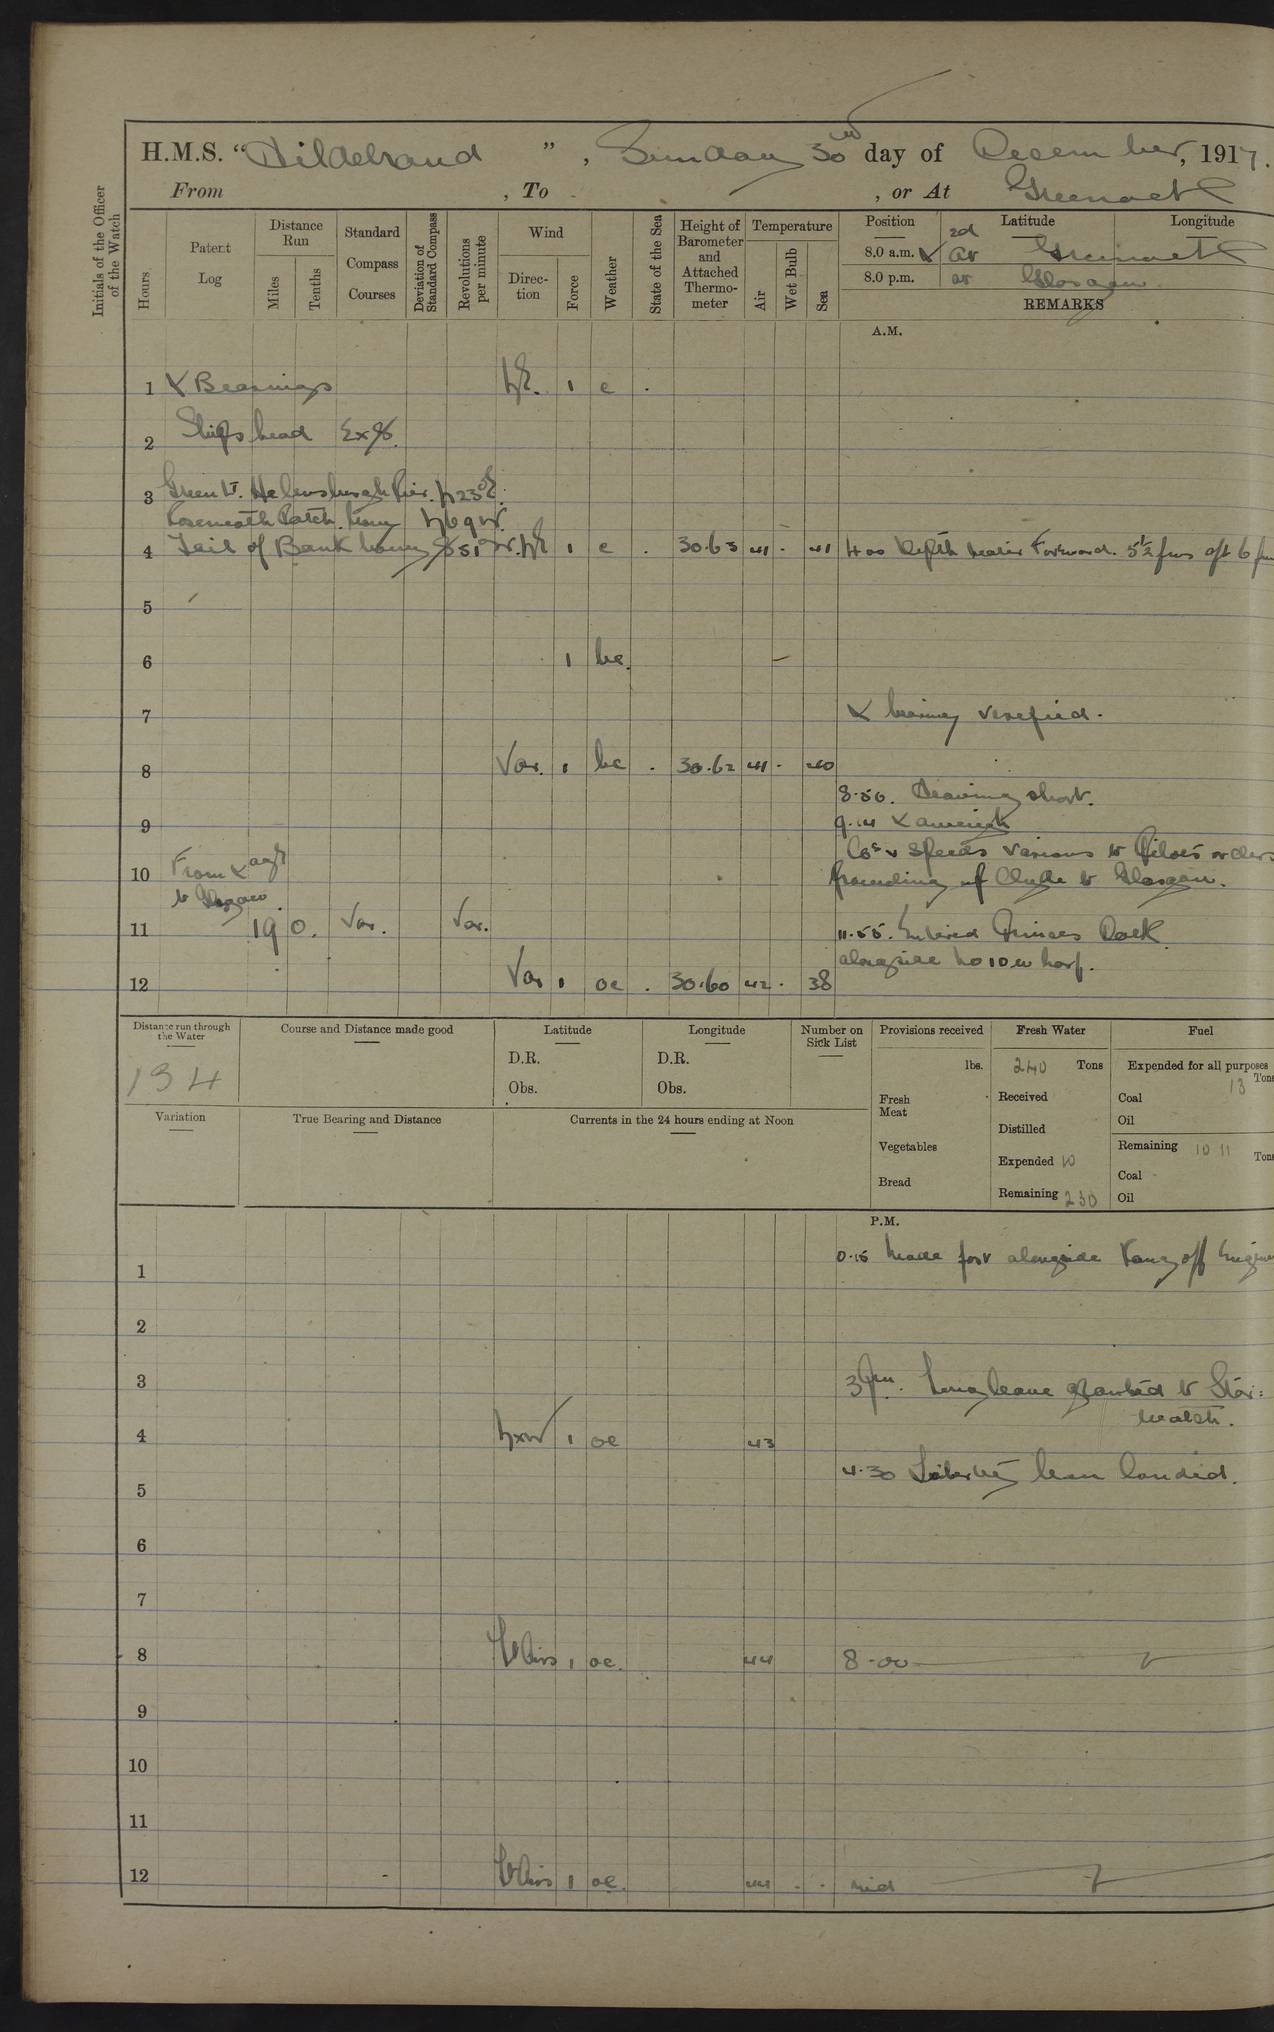 H.M.S. “Hildebrand”, Sunday 30 day of December, 1917.
From , To , or At Greenock
Initials of the Officer of the Watch
Hours
Patent Log
Distance Run
Miles
Tenths
Standard Compass Courses
Deviation of Standard Compass
Revolutions per minute
Wind
Direction
Force
Weather
State of the Sea
Height of Barometer and Attached Thermometer
Temperature
Air
Wet Bulb
Sea
Position Latitude Longitude
8.0 a.m. at Greenock
8.0 p.m. at Glasgow
REMARKS
A.M.
1 Bearings NE. 1 c .
2 Ships head
3 Green Lt. Helensburgh Pier. N23°E
Roseneath Patch buoy N69W.
4 Tail of Bank buoy S51°W. NE 1 c . 30.63 41 . 41 4.00 Depth water Forward. 5½ fms aft 6
5
6 1 bc.
7 bearing verefied.
8 Var. 1 bc . 30.62 41 . 40
8.50. Heaving short.
9 9.14 aweigh
Cos & Speeds various to Pilots orders
10 From to Glasgow proceeding up Clyde to Glasgow.
11 19 0. Var. Var. 11.55. Entered Princes Dock
alongside No 10 wharf.
12 Var 1 oc . 30.60 42 . 38
Distance run through the Water
134
Course and Distance made good
Latitude
D.R.
Obs.
Longitude
D.R.
Obs.
Number on Sick List
Provisions received
lbs.
Fresh Meat
Vegetables
Bread
Fresh Water
240 Tons
Received
Distilled
Expended 10
Remaining 230
Fuel
Expended for all purposes
13 Tons
Coal
Oil
Remaining 1011 Tons
Coal
Oil
Variation
True Bearing and Distance
Currents in the 24 hours ending at Noon
P.M.
0.15 Made fast alongside Rang off
1
2
3 3 pm. Long leave granted to Star:
watch.
4 NxW 1 oc 43
4.30 Liberty men landed.
5
6
7
8 Lt Airs 1 oc. 44 8.00
9
10
11
12 Lt Airs 1 oc. 44 . . mid